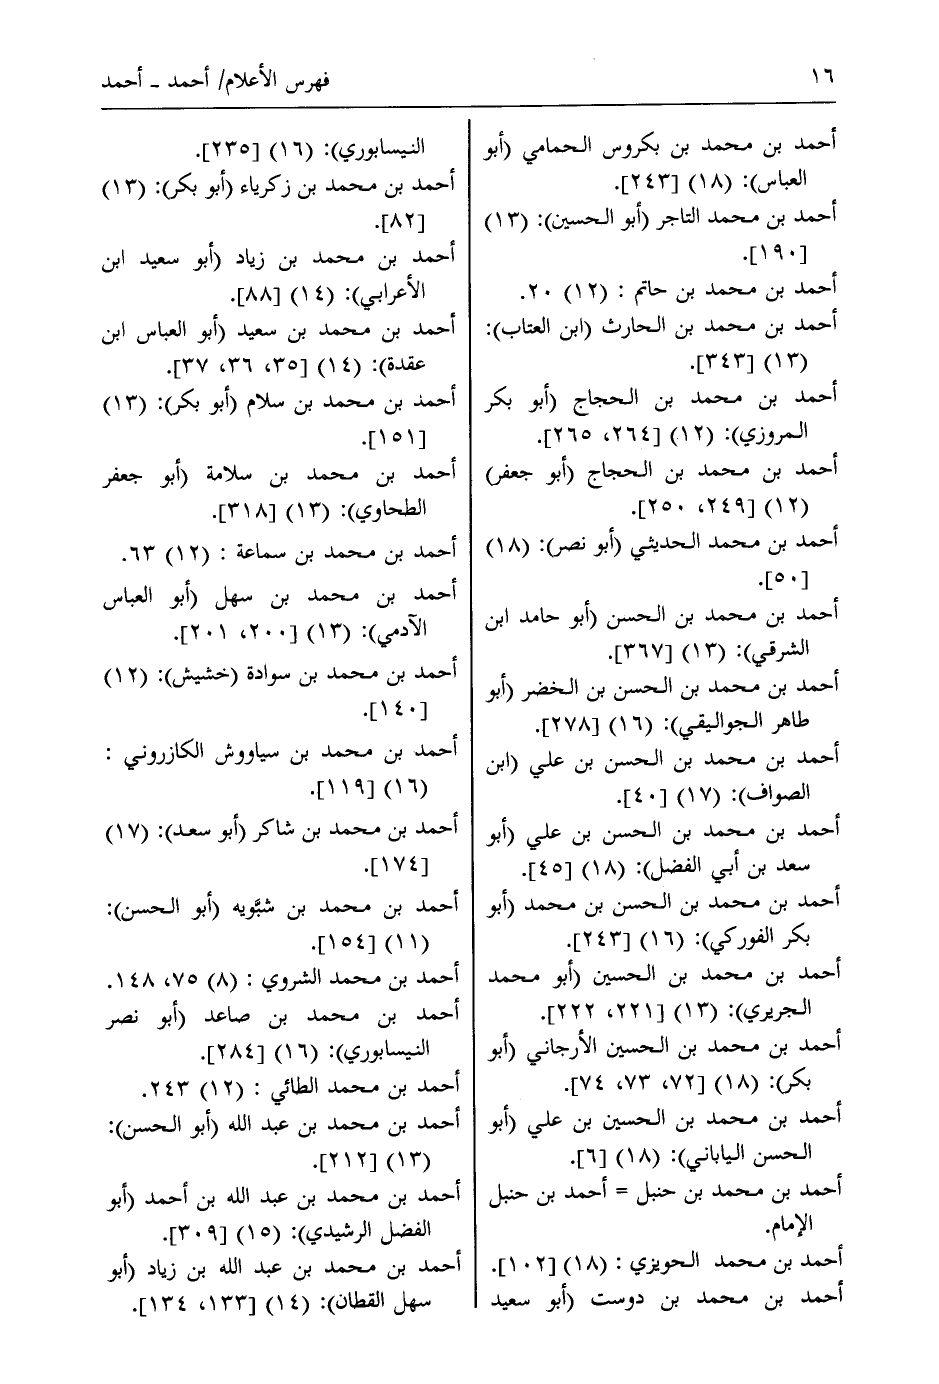 ١٦
فهرس الأعلام/ أحمد ـ أحمد
أحمد بن محمد بن بكروس الحمامي (أبو
العباس): (١٨) [٢٤٣].
أحمد بن محمد التاجر (أبو الحسين): (١٣)
[١٩٠].
أحمد بن محمد بن حاتم : (١٢) ٢٠.
أحمد بن محمد بن الحارث (ابن العتاب):
(١٣) [٣٤٣].
أحمد بن محمد بن الحجاج (أبو بكر
المروزي): (١٢) [٢٦٤، ٢٦٥].
أحمد بن محمد بن الحجاج (أبو جعفر)
(١٢) [٢٤٩، ٢٥٠].
أحمد بن محمد الحديثي (أبو نصر): (١٨)
[٥٠].
أحمد بن محمد بن الحسن (أبو حامد ابن
الشرقي): (١٣) [٣٦٧].
أحمد بن محمد بن الحسن بن الخضر (أبو
طاهر الجواليقي): (١٦) [٢٧٨].
أحمد بن محمد بن الحسن بن علي (ابن
الصواف): (١٧) [٤٠].
أحمد بن محمد بن الحسن بن علي (أبو
سعد بن أبي الفضل): (١٨) [٤٥].
أحمد بن محمد بن الحسن بن محمد (أبو
بكر الفوركي): (١٦) [٢٤٣].
أحمد بن محمد بن الحسين (أبو محمد
الجريري): (١٣) [٢٢١، ٢٢٢].
أحمد بن محمد بن الحسين الأرجاني (أبو
بكر): (١٨) [٧٢، ٧٣، ٧٤].
أحمد بن محمد بن الحسين بن علي (أبو
الحسن الياباني): (١٨) [٦].
أحمد بن محمد بن حنبل = أحمد بن حنبل
الإمام.
أحمد بن محمد الحويزي : (١٨) [١٠٢].
أحمد بن محمد بن دوست (أبو سعيد
النيسابوري): (١٦) [٢٣٥].
أحمد بن محمد بن زكرياء (أبو بكر): (١٣)
[٨٢].
أحمد بن محمد بن زياد (أبو سعيد ابن
الأعرابي): (١٤) [٨٨].
أحمد بن محمد بن سعيد (أبو العباس ابن
عقدة): (١٤) [٣٥، ٣٦، ٣٧].
أحمد بن محمد بن سلام (أبو بكر): (١٣)
[١٥١].
أحمد بن محمد بن سلامة (أبو جعفر
الطحاوي): (١٣) [٣١٨].
أحمد بن محمد بن سماعة : (١٢) ٦٣.
أحمد بن محمد بن سهل (أبو العباس
الآدمي): (١٣) [٢٠٠، ٢٠١].
أحمد بن محمد بن سوادة (خشيش): (١٢)
[١٤٠].
أحمد بن محمد بن سياووش الكازروني :
(١٦) [١١٩].
أحمد بن محمد بن شاكر (أبو سعد): (١٧)
[١٧٤].
أحمد بن محمد بن شبَّويه (أبو الحسن):
(١١) [١٥٤].
أحمد بن محمد الشروي : (٨) ٧٥، ١٤٨.
أحمد بن محمد بن صاعد (أبو نصر
النيسابوري): (١٦) [٢٨٤].
أحمد بن محمد الطائي : (١٢) ٢٤٣.
أحمد بن محمد بن عبد الله (أبو الحسن):
(١٣) [٢١٢].
أحمد بن محمد بن عبد الله بن أحمد (أبو
الفضل الرشيدي): (١٥) [٣٠٩].
أحمد بن محمد بن عبد الله بن زياد (أبو
سهل القطان): (١٤) [١٣٣، ١٣٤].